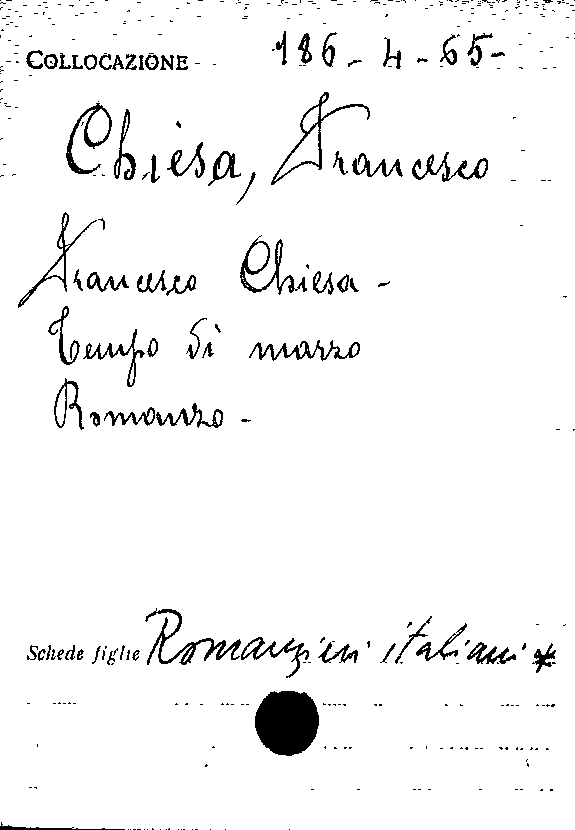 COLLOCAZIONE 186-4-65-
Chiesa, Francesco
Francesco Chiesa -
Tempo di marzo
Romanzo -
Schede figlie Romanzieri italiani *